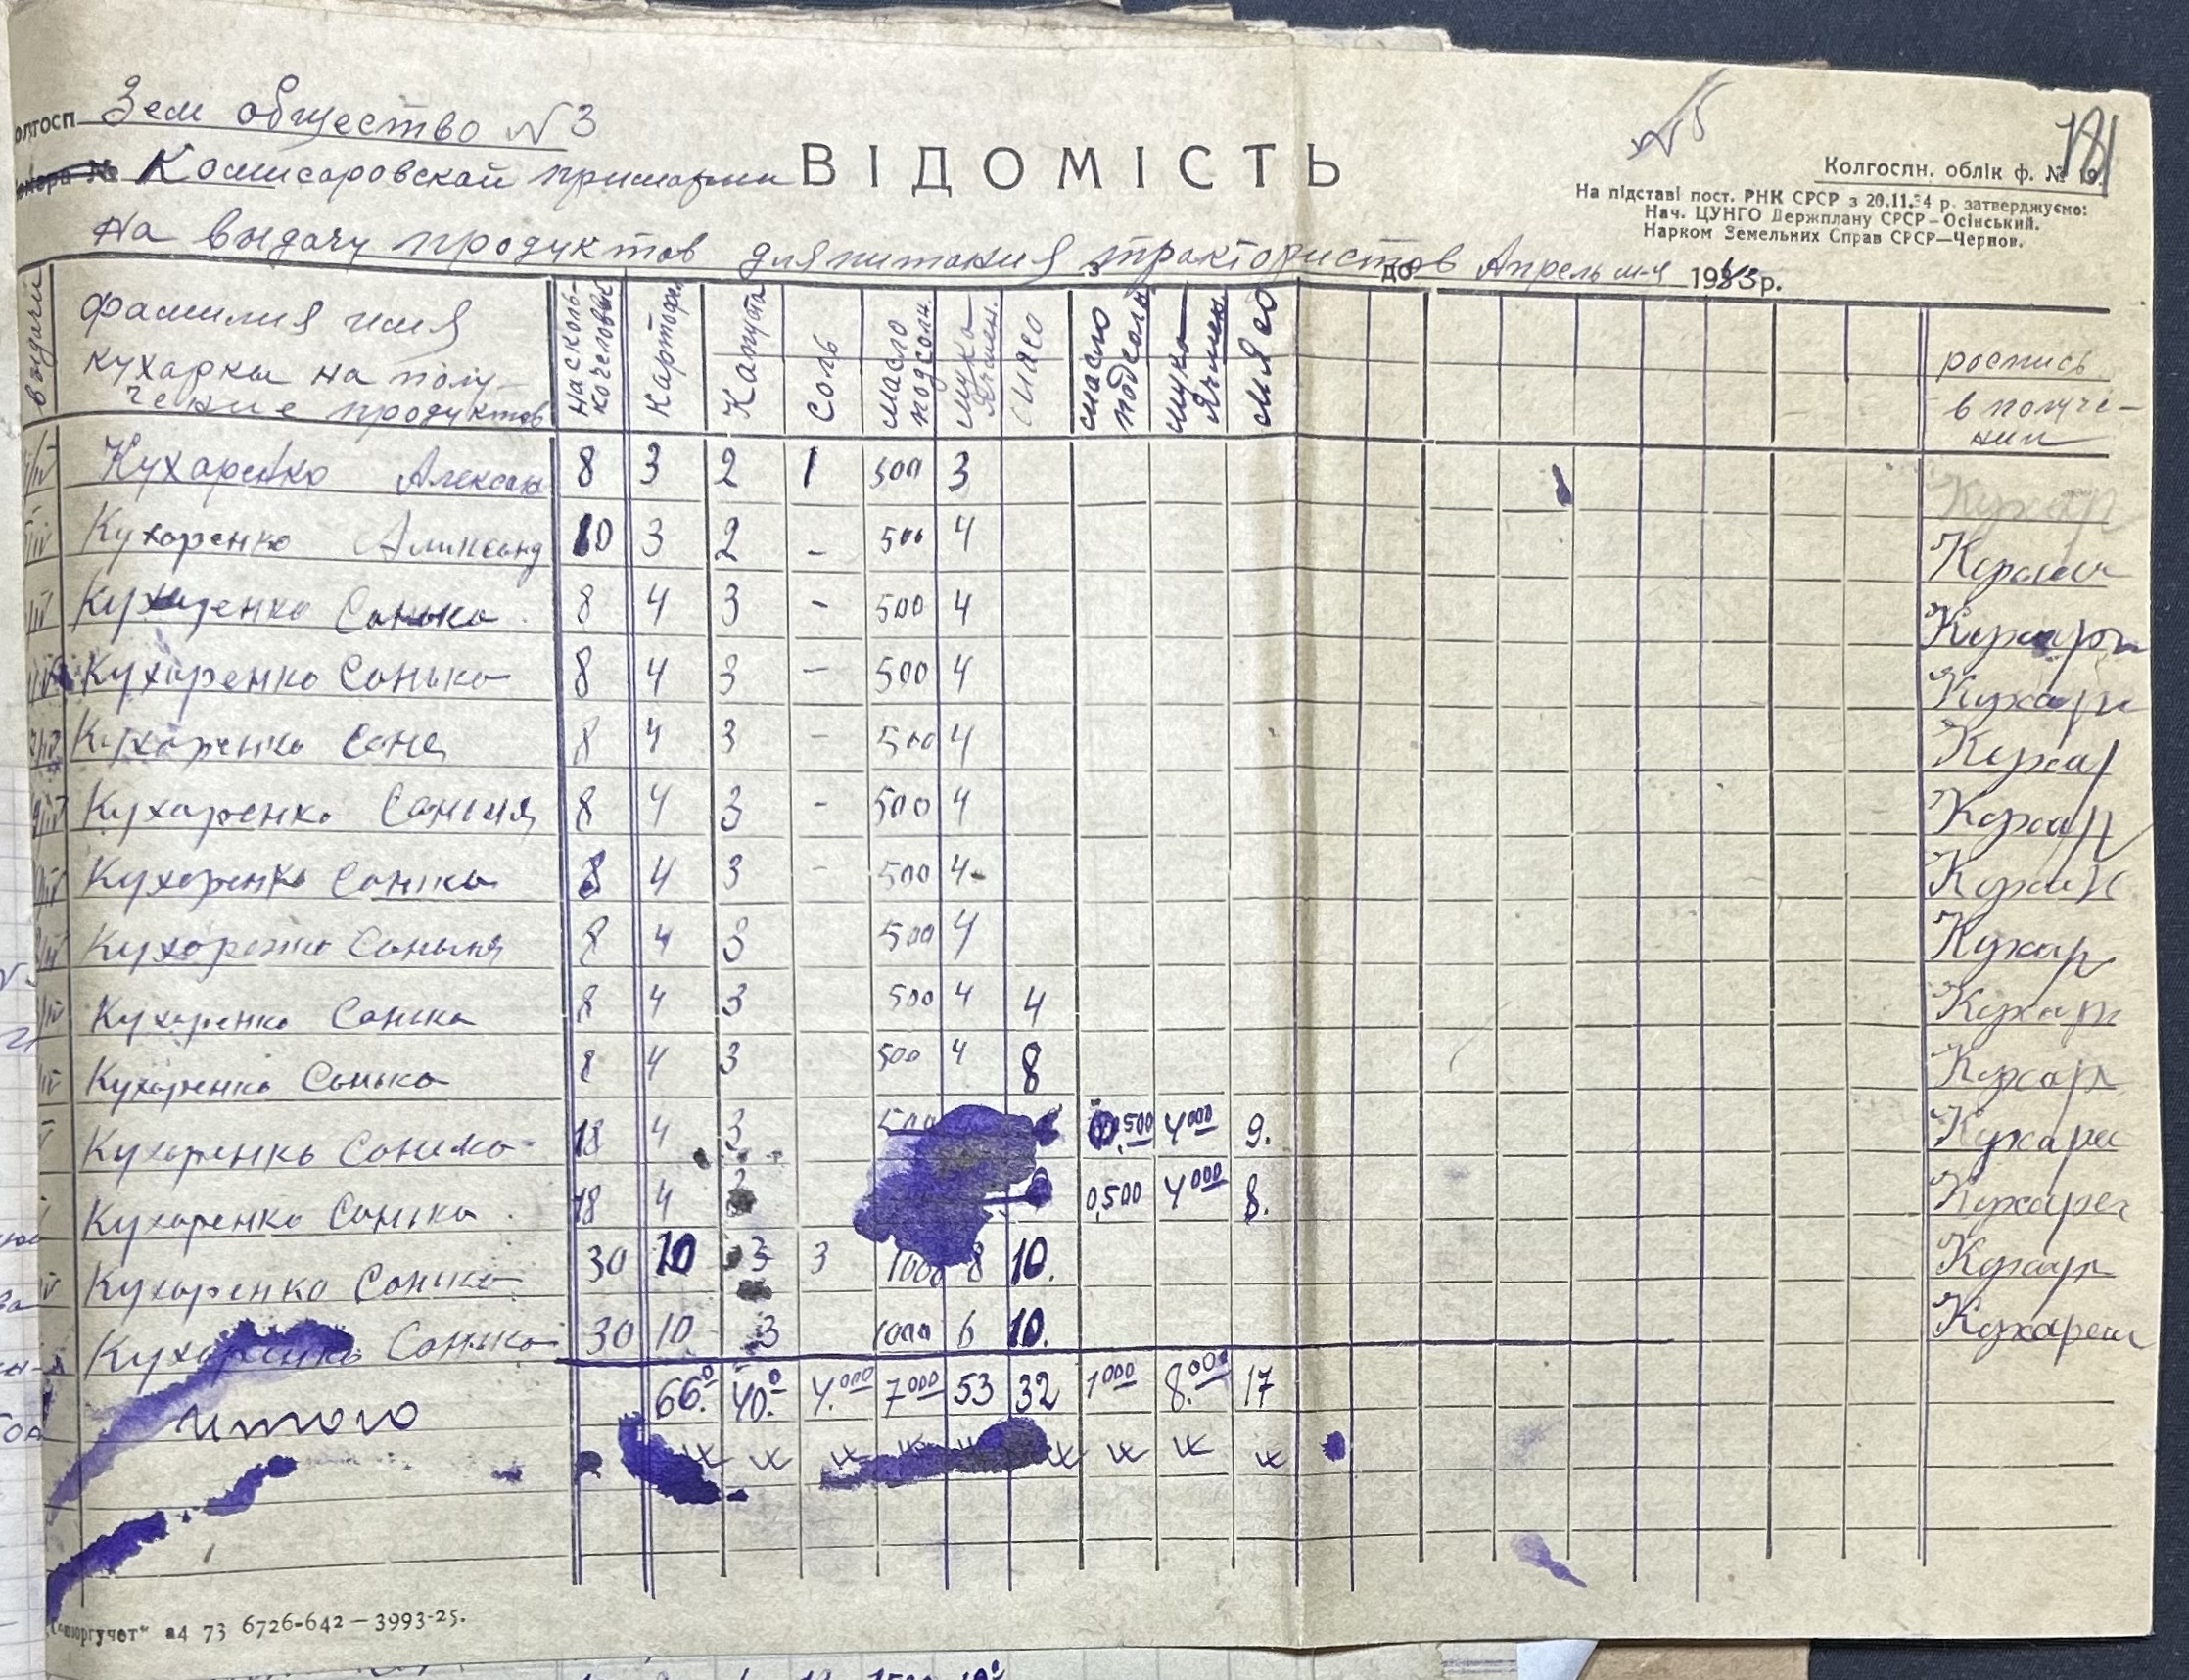 олгосп Зем общество №3
№5
181
Комисаровской примарии ВІДОМІСТЬ
Колгоспн. облік ф. № 19.
На підставі пост. РНК СРСР з 20.11.34 р. затверджуємо:
Нач. ЦУНГО Держплану СРСР—Осінський.
Нарком Земельних Справ СРСР—Чернов.
На выдачу продуктов для питания трактористов з до Апрель м-ц 1943 р.
выдачи фамилия имя кухарки на полу- чение продуктов на сколь- ко человек Картофи Капуста Соль масло подсолн. мука Ячмен. мясо масло подсолн мука Ячмен мясо роспись в получе- нии
Кухаренко Алексан 8 3 2 1 500 3 Кухар
Кухаренко 10 3 2 - 500 4
Кухаренко Санька 8 4 3 - 500 4 Кухарен
Кухаренко Санька 8 4 3 - 500 4 Кухарн
Кухаренко Саня 8 4 3 - 500 4 Кухар
Кухаренко 8 4 3 - 500 4 Кухар
Кухаренко Санька 8 4 3 - 500 4-
Кухаренко 8 4 3 500 4 Кухар
Кухаренко Санька 8 4 3 500 4 4 Кухарн
Кухаренко Санька 8 4 3 500 4 8 Кухарн
Кухаренко Санька 18 4 3 500 0,500 4000 9. Кухарен
Кухаренко Санька 18 4 3 0,500 4000 8. Кухарен
Кухаренко Санька 30 10 3 3 1000 8 10. Кухарн
Кухаренко Санька 30 10 3 1000 6 10. Кухарен
итого 66.0 40.0 4.000 7000 53 32 1000 8.000 17
„Союзоргучет“ а4 73 6726-642—3993-25.